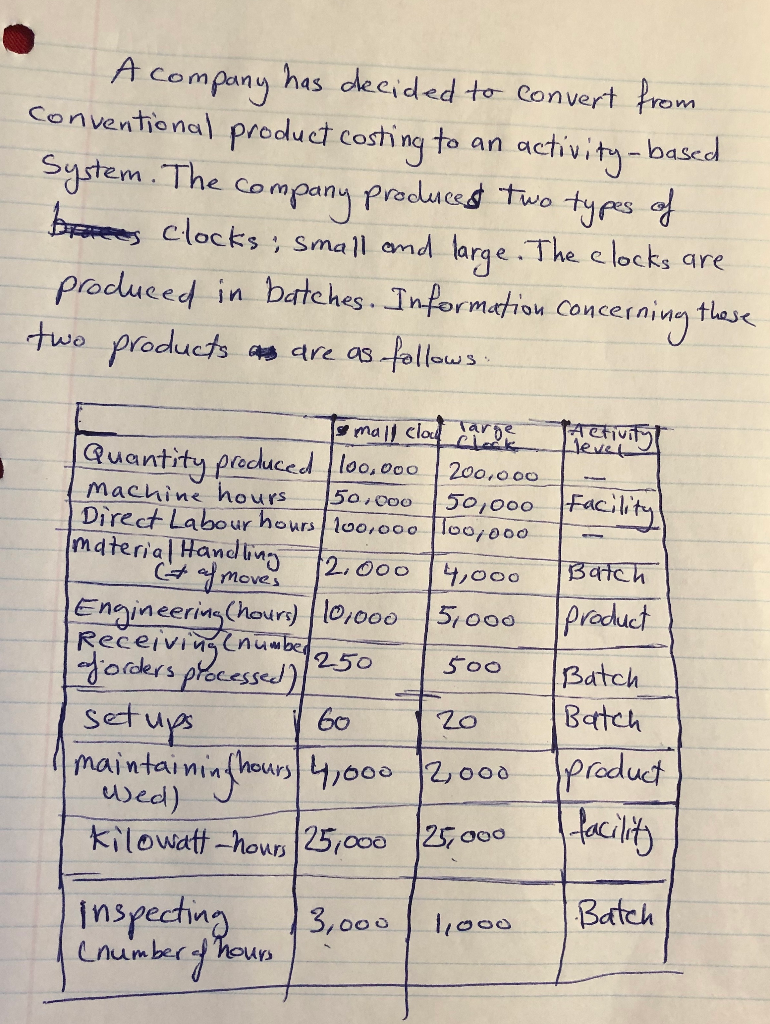 A company has decided to convert from
conventional product costing to an activity-based
System. The company produces two types of
clocks; small and large. The clocks are
produced in batches. Information concerning these
two products are as follows:
small cloc large Clock Activity level
Quantity produced 100,000 200,000 —
Machine hours 50,000 50,000 Facility
Direct Labour hours 100,000 100,000 —
Material Handling (# of moves 2,000 4,000 Batch
Engineering (hours) 10,000 5,000 product
Receiving (number of orders processed) 250 500 Batch
set ups 60 20 Batch
maintaining (hours used) 4,000 2,000 product
Kilowatt-hours 25,000 25,000 facility
Inspecting (number of hours 3,000 1,000 Batch